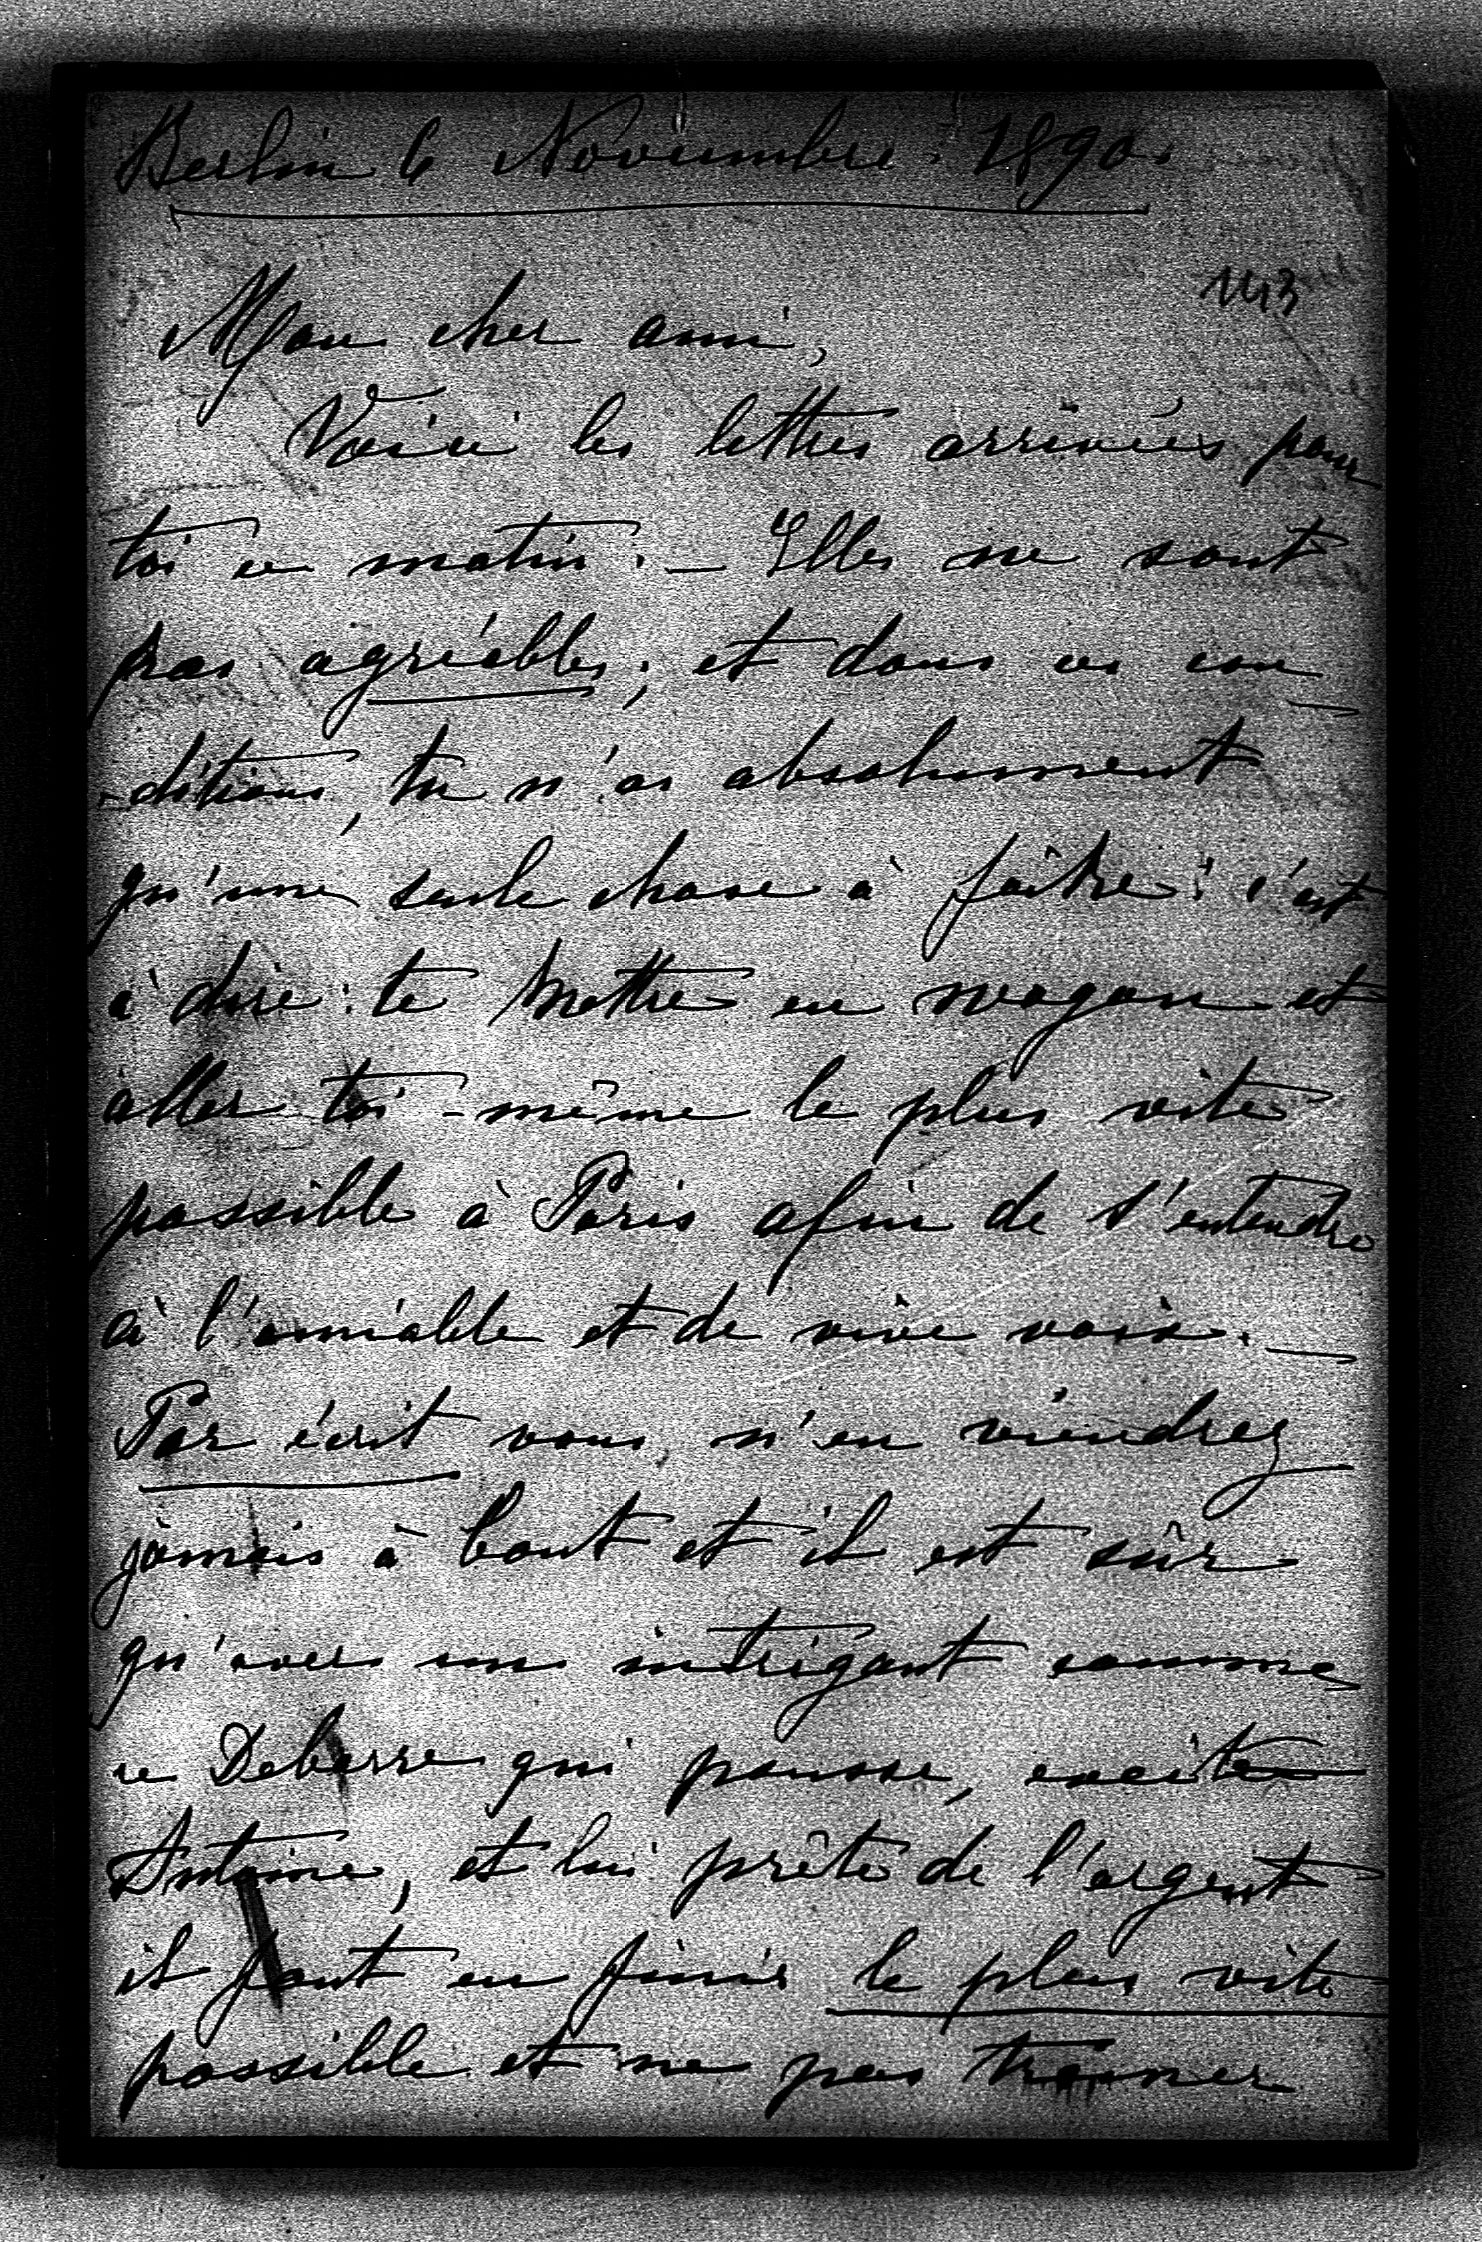 Berlin 6 Novembre 1890.
143
Mon cher ami,
Voici les lettres arrivées pour
toi ce matin. — Elles ne sont
pas agréables; et dans ces con-
-ditions, tu n'as absolument
qu'une seule chose à faire: c'est
à dire: te mettre en wagon et
aller toi-même le plus vite
possible à Paris afin de s'entendre
à l'amiable et de vive voix. —
Par écrit vous n'en viendrez
jamais à bout et il est sûr
qu'avec un intrigant comme
ce Deberre qui pousse, excite
Antoine, et lui prête de l'argent
il faut en finir le plus vite
possible et ne pas traîner